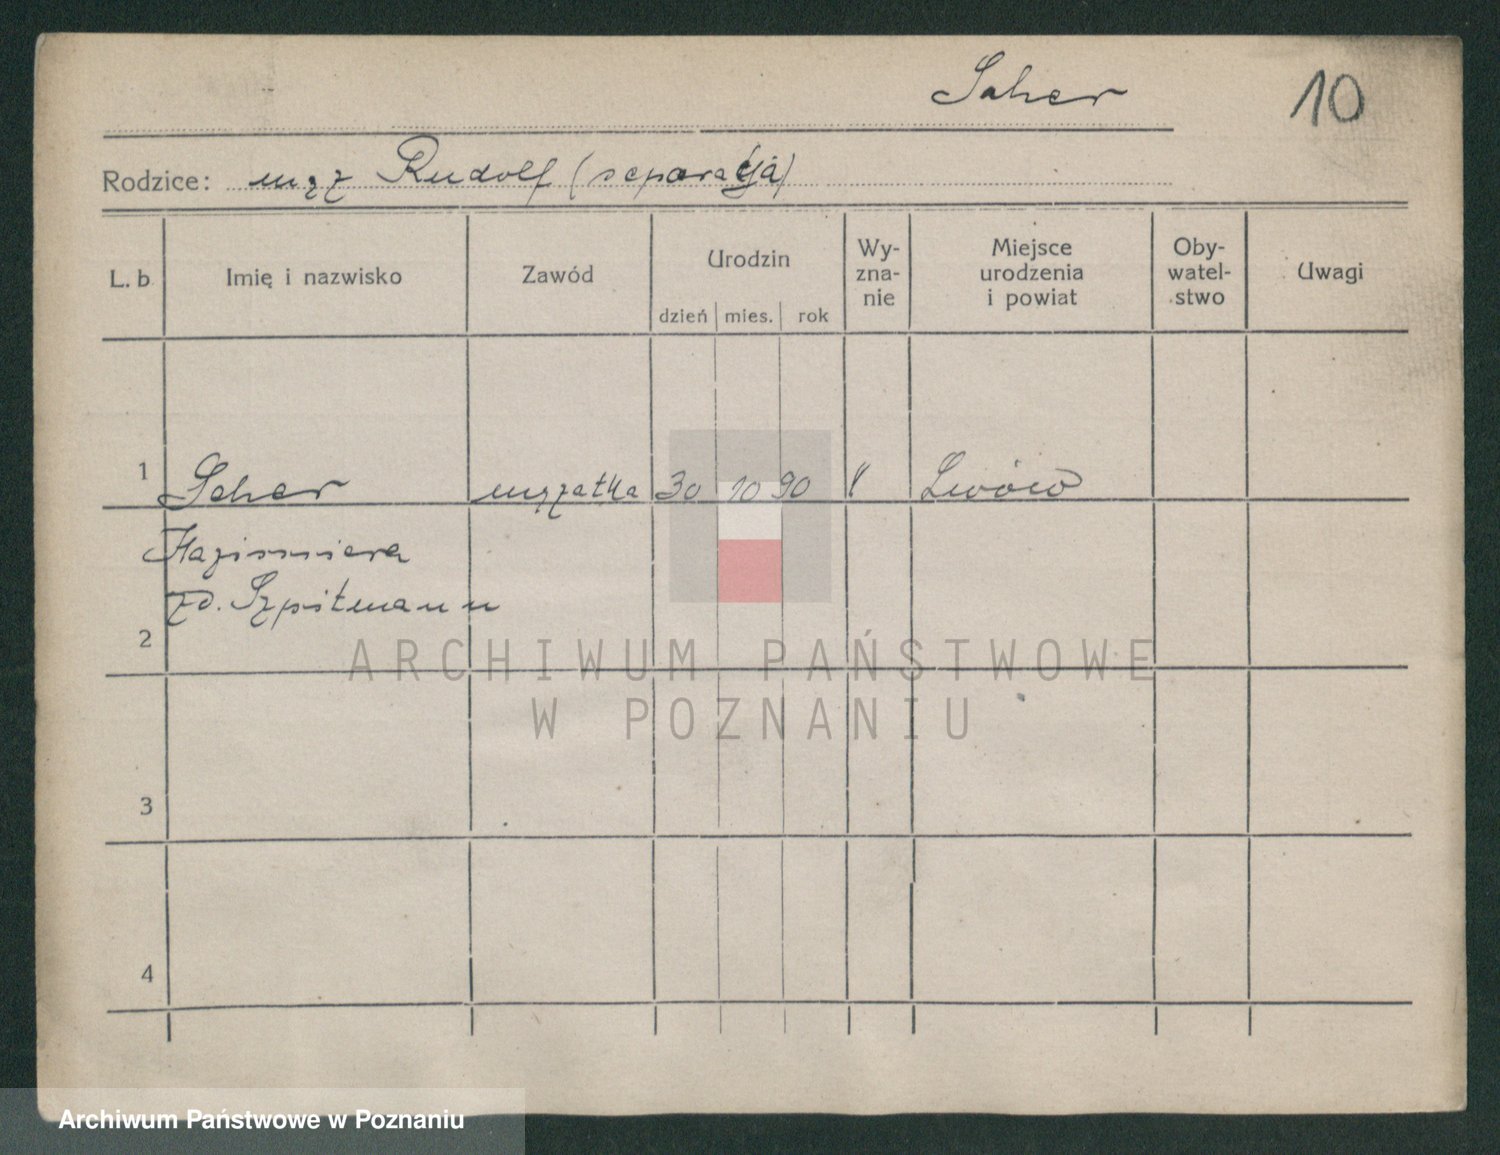 Scher
10
Rodzice: mąż Rudolf (separacja)
L. b Imię i nazwisko Zawód Urodzin Wy-zna-nie Miejsce urodzenia i powiat Oby-watel-stwo Uwagi
dzień mies. rok
1 Scher mężatka 30 10 90 Lwów
Kazimiera
zd. Szpitmann
2
3
4
ARCHIWUM PAŃSTWOWE
W POZNANIU
Archiwum Państwowe w Poznaniu